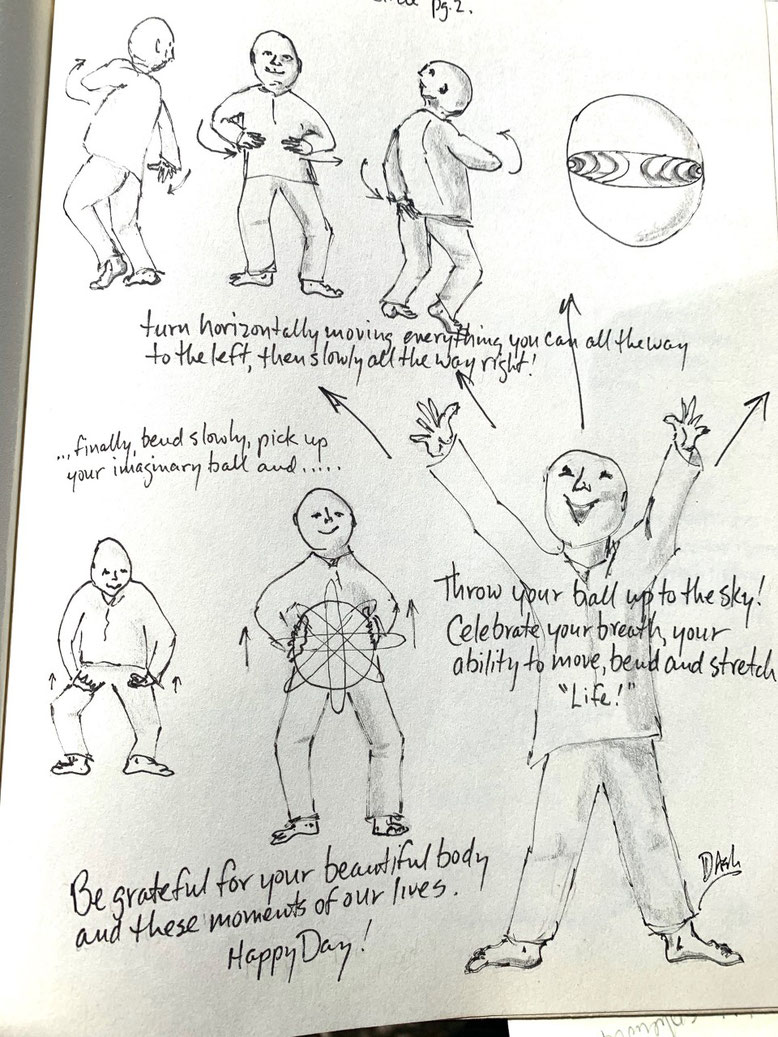 pg.2.
turn horizontally moving everything you can all the way
to the left, then slowly all the way right!
...finally, bend slowly, pick up
your imaginary ball and.....
Throw your ball up to the sky!
Celebrate your breath, your
ability to move, bend and stretch
"Life!"
Be grateful for your beautiful body
and these moments of our lives.
Happy Day!